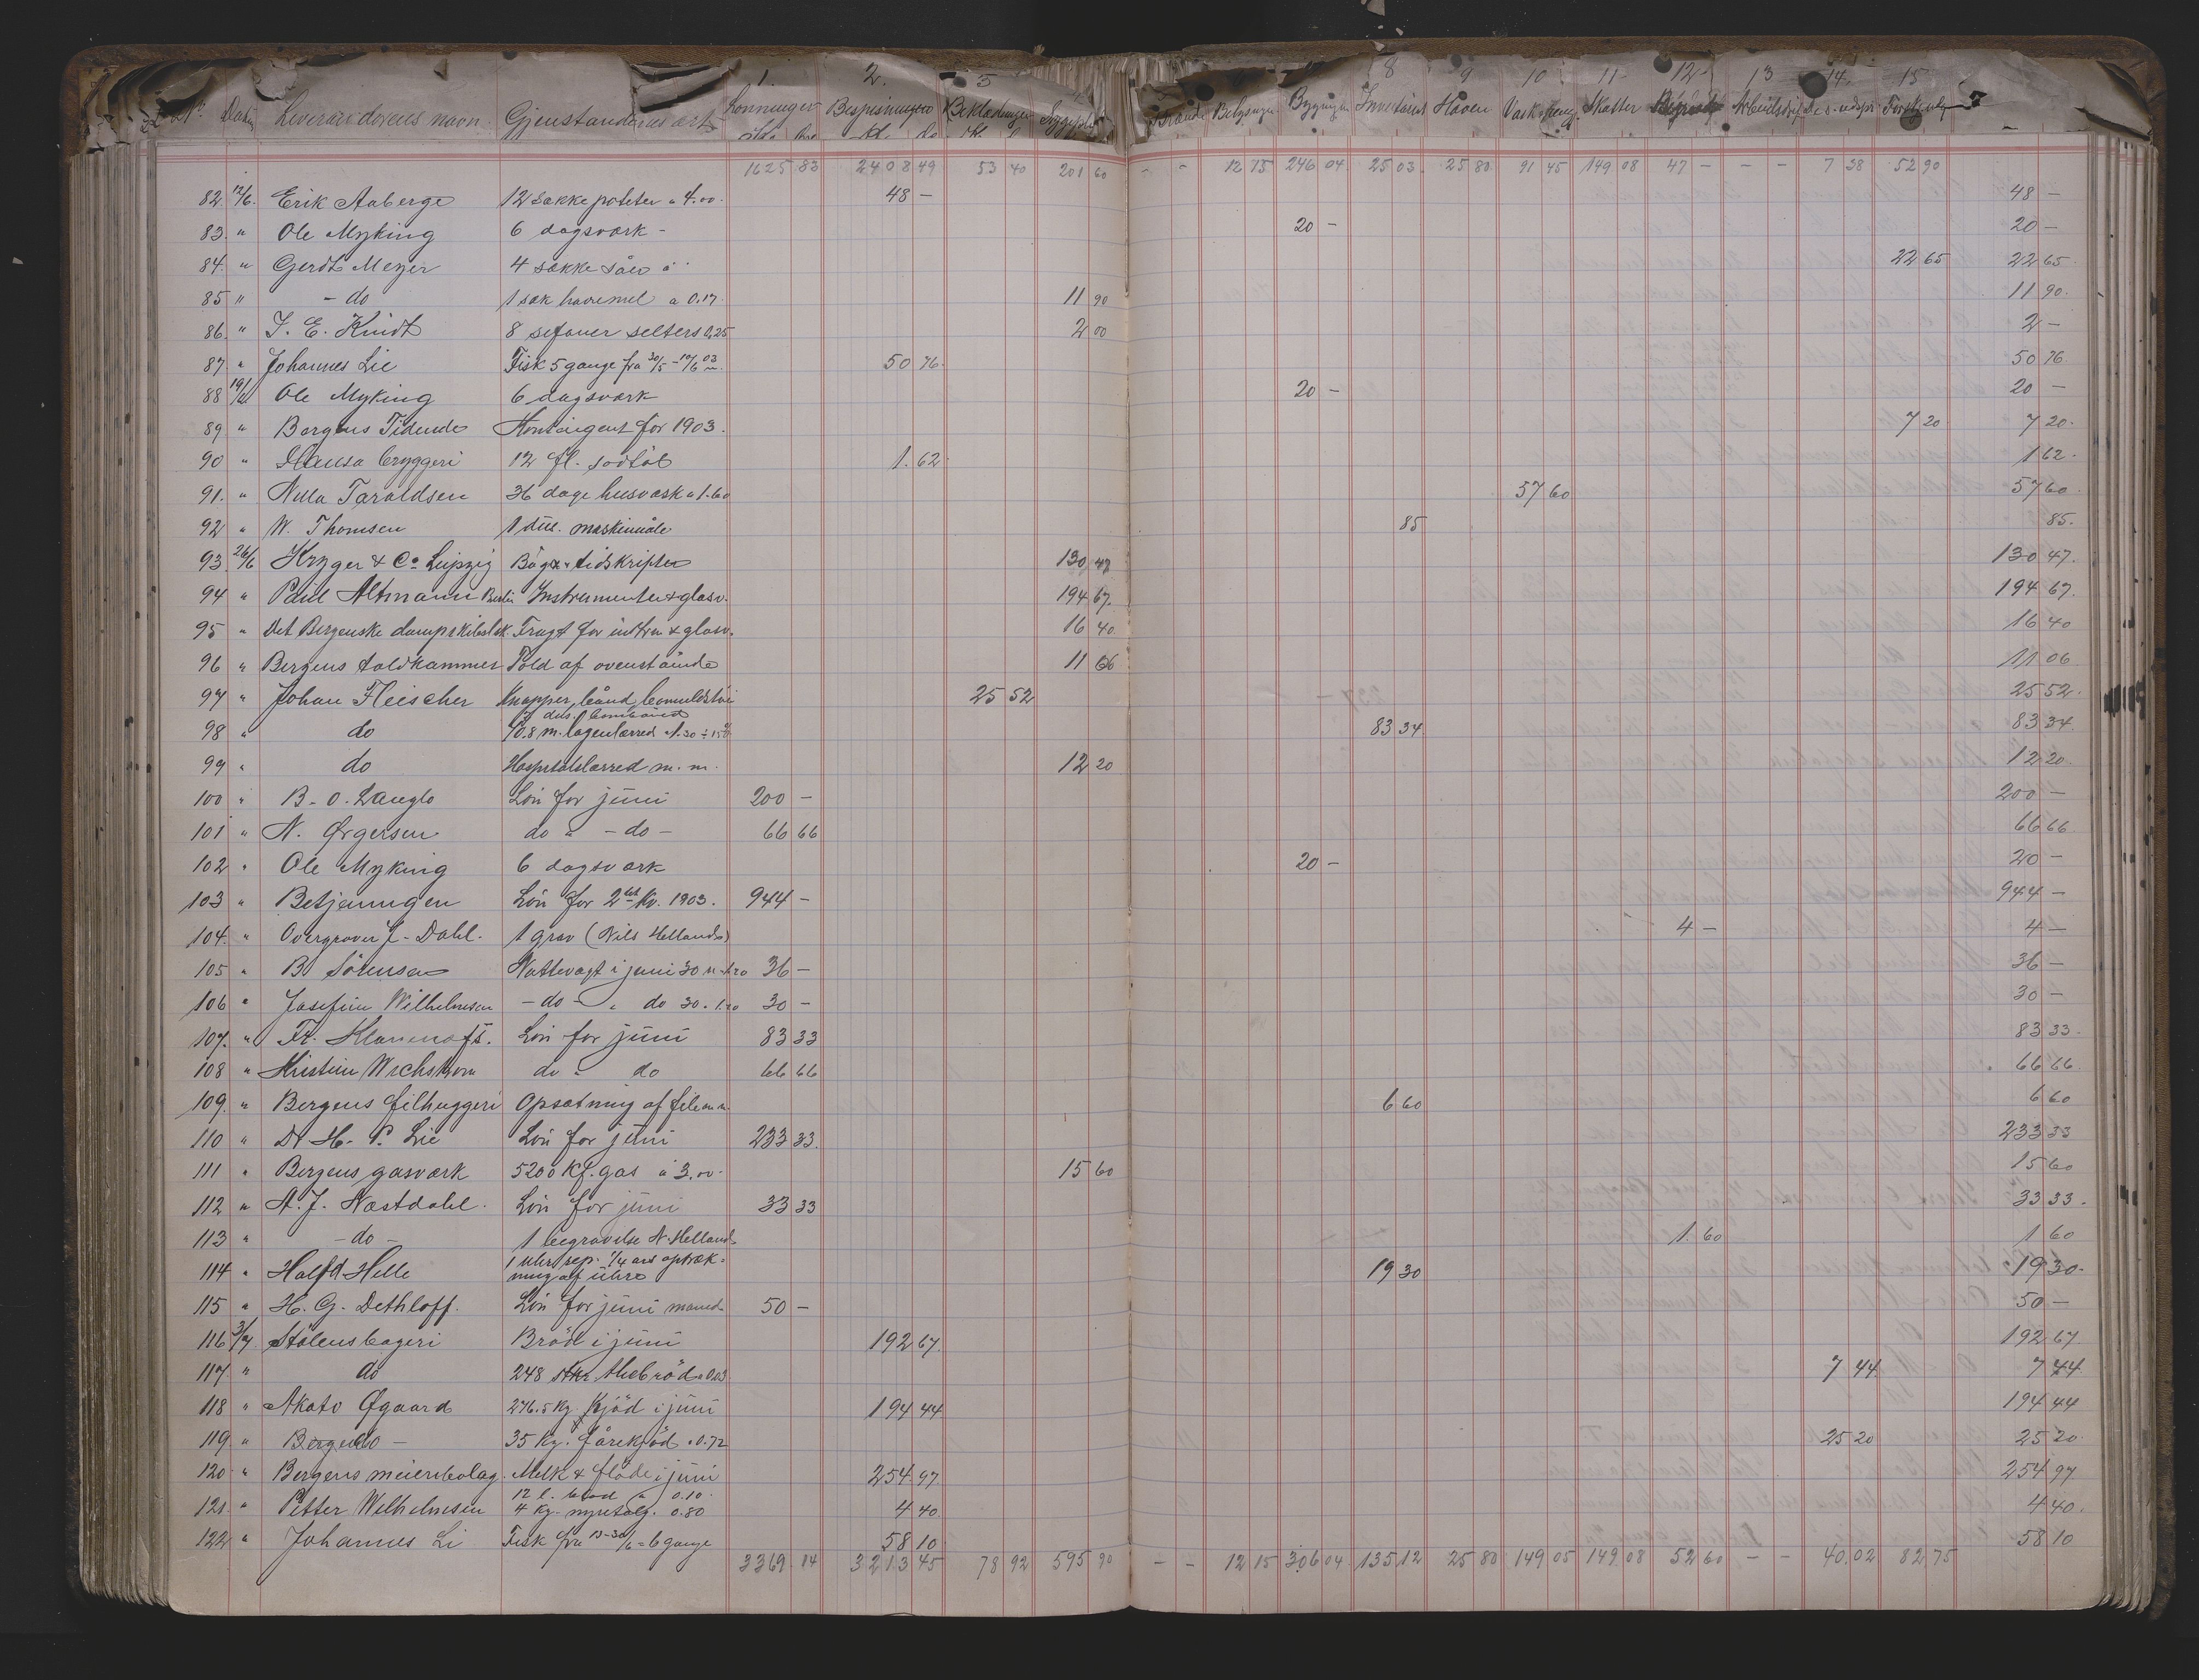 1. 2. 3 8 9 10 11 12 13 14. 15
Nº Datum Leverandörens navn. Gjenstandens art Lönninger Bespisningen Beklædningen Sygepleie Brænde Belysngen Bygningen Inventariet Haven Vask & reng. Skatter Begravelse Arbeidsdrift
1625 83 2408 49 53 40 201 60 - - 12 15 246 04 25 03 25 80 91 45 149 08 47 - - - 7 38 52 90
82. 12/6. Erik Aaberge 12 sække poteter a 4.00. 48 - 48 -
83. " Ole Myking 6 dagsværk - 20 - 20 -
84. " Gerdt Meyer 4 sække 22 65 22 65
85 " - do 1 sæk havremel a 0.17. 11 90 11 90.
86. " J. E. Kindt 8 sifoner selters 0,25 2 00 2 -
87. " Johannes Lie Fisk 5 gange fra 30/5 - 10/6 03 50 76. 50 76
88 19/6 Ole Myking 6 dagsværk 20 - 20 -
89 " Bergens Tidende Kontingent for 1903. 7 20 7 20.
90 " Hansa bryggeri 12 fl. sodtöl 1. 62 1 62.
91. " Nilla Taraldsen 36 dage husvask a 1.60 57 60 57 60.
92 " W. Thomsen 1 dus. maskinnåle 85 85.
93. 26/6 Kryger & Co Leipzig Böger & tidskrifter 130 47 130 47.
94 " Paul Altmann Berlin Instrumenter & glasv. 194 67. 194 67.
95 " Det Bergenske dampskibselsk. Fragt for instru & glasv. 16 40. 16 40
96 " Bergens toldkammer Told af ovenstående 11 06 11 06
97 " Johan Fleischer Knapper, bånd, bomuldstöi 25 52 25 52.
98 " do 70.8 m. lagenlærred 1.30 ÷ 15% 83 34. 83 34.
99 " do Hospitalslærred m. m. 12 20 12 20.
100 " B. O. Langlo Lön for juni 200 - 200 -
101 " N. Ørgersen do " - do - 66 66 66 66
102 " Ole Myking 6 dagsværk 20 - 20 -
103 " Betjeningen Lön for 2det Kv. 1903. 944 - 944 -
104. " Overgraver J. Dahl. 1 grav (Nils Hellands) 4 - 4 -
105 " B Sörensen Nattevagt i juni 30 n - 1.20 36 - 36 -
106 " Josefine Wilhelmsen - do - " do 30 - 1.00 30 - 30 -
107. " Fr. Lön for juni 83 33 83 33.
108 " Kristine Wichström do " do 66 66 66 66.
109. " Bergens filhuggeri Opsætning af file m.m. 6 60 6 60
110 " Dr H. P. Lie Lön for juni 233 33. 233 33
111 " Bergens gasværk 5200 Kf. gas à 3.00- 15 60 15 60
112 " A. J. Næstdahl. Lön for juni 33 33 33 33.
113 " - do - 1 begravelse N. Helland 1. 60 1 60
114 " Halfd Helle 1 uhr rep. 1/4 aars optræk=
ning af uhre 19 30 19 30.
115 " H. G. Dethloff. Lön for juni maaned 50 - 50 -
116 3/7 Stölens bageri Bröd i juni 192 67. 192 67.
117. " do 248 stkr. thebröd a 0.03 7 44. 7 44.
118 " Akato Øgaard 276.5 Kg. Kjöd i juni 194 44 194 44
119. " do - 35 Kg. fårekjöd. a 0.72 25 20 25 20.
120 " Bergens meieribolag. Melk & flöde i juni 254. 97. 254 97.
121. " Petter Wilhelmsen 12 l. blod " 0.10.
4 Kg. nyretalg. 0.80 4 40. 4 40.
122 " Johannes Li Fisk fra 13-30/6 = 6 gange 58 10. 58 10
3369. 14 3213 45 78 92 595 90 - - 12 15 306 04 135 12 25 80 149 05 149 08 52 60 - - 40. 02 82. 75